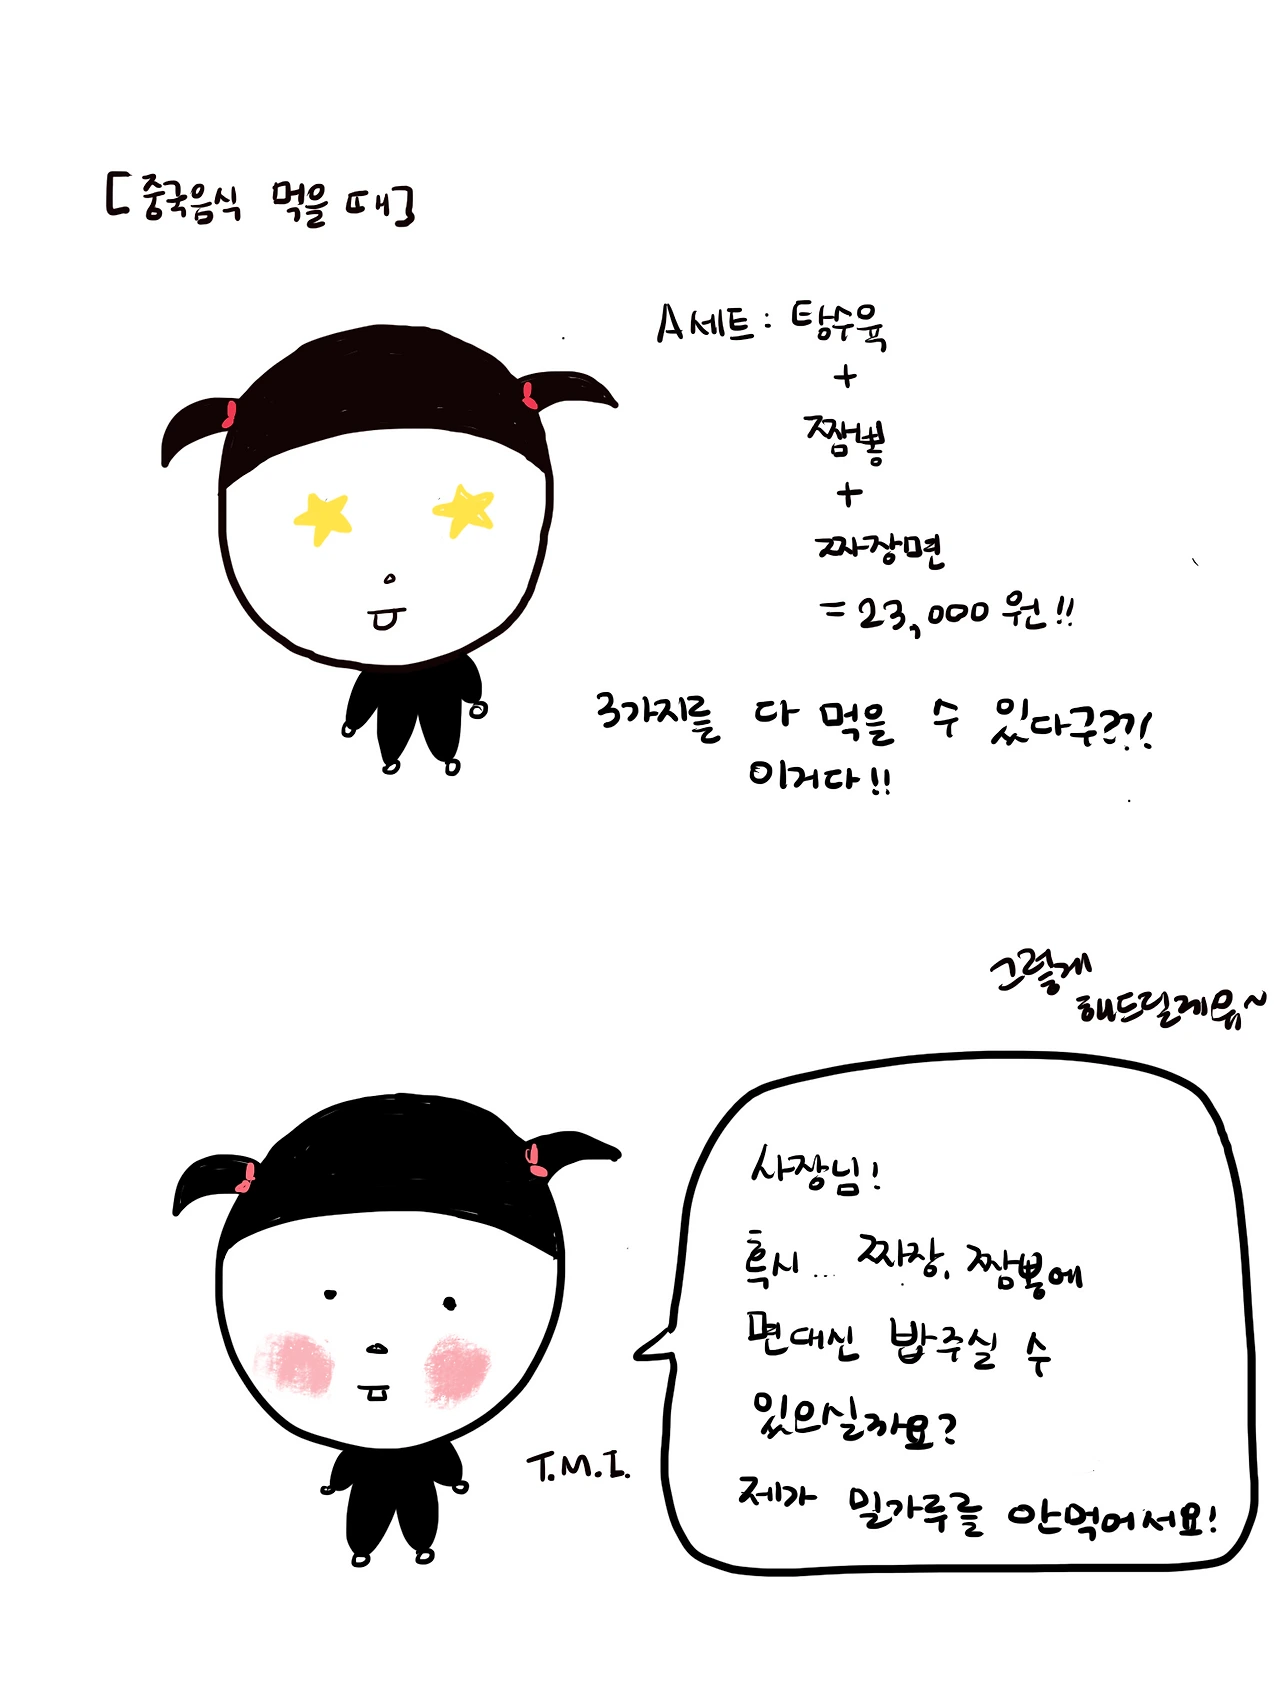 [중국음식 먹을 때]
A세트: 탕수육
+
짬뽕
+
짜장면
= 23,000원!!
3가지를 다 먹을 수 있다구??!
이거다!!
그렇게
해드릴게유~
사장님!
혹시... 짜장, 짬뽕에
면대신 밥주실 수
있으실까요?
제가 밀가루를 안먹어서요!
T.M.I.